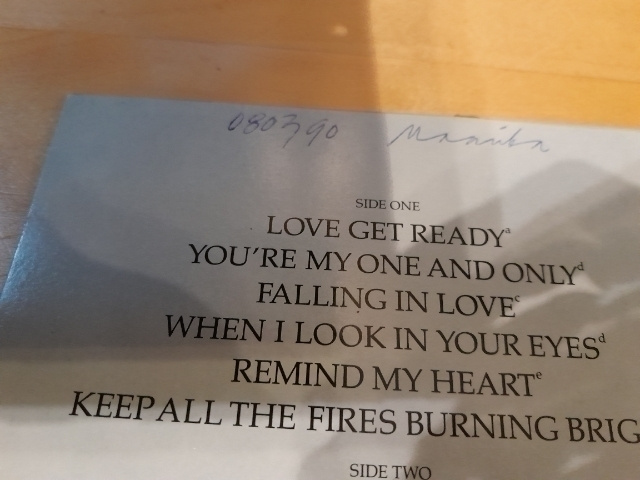 080790 Maanita
SIDE ONE
LOVE GET READYᵃ
YOU'RE MY ONE AND ONLYᵈ
FALLING IN LOVEᶜ
WHEN I LOOK IN YOUR EYESᵈ
REMIND MY HEARTᵉ
KEEP ALL THE FIRES BURNING BRIG
SIDE TWO